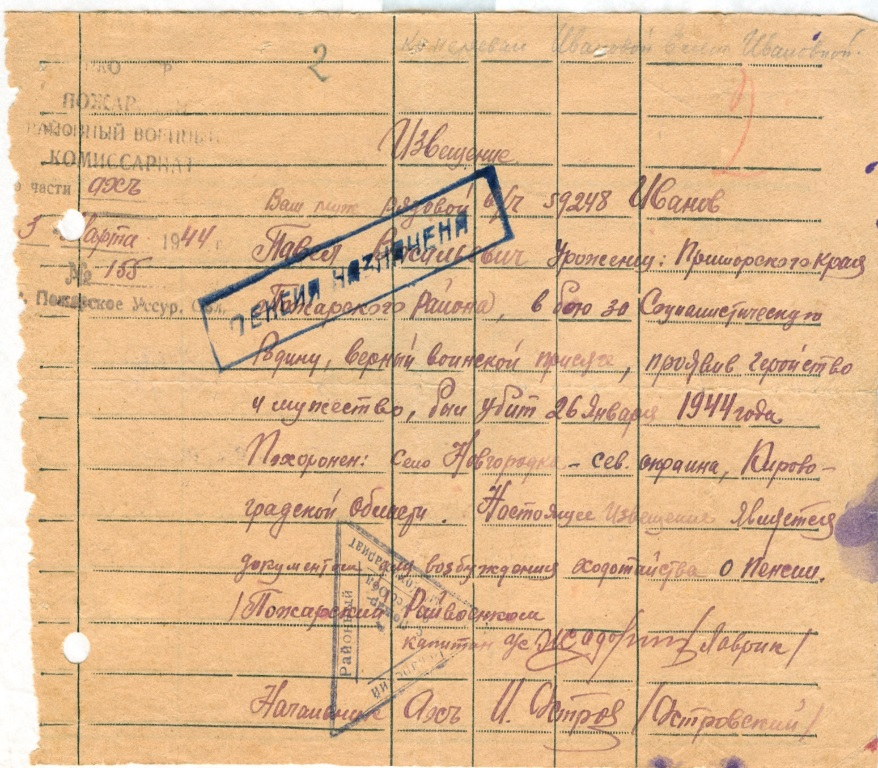 2
Ивановой Ивановной.
ПОЖАР
РАЙОННЫЙ ВОЕННЫЙ
КОМИССАРИАТ
части АХЧ
3 Марта 1944 г.
№ 155
Пожарское Уссур. Обл.
Извещение
Ваш муж рядовой в/ч 59248 Иванов
Павел Уроженец: Приморского Края
Пожарского Района, в бою за Социалистическую
Родину, верный воинской присяге, проявив геройство
и мужество, был убит 26 Января 1944 года
Похоронен: село Новгородка – сев. окраина, Кирово-
градской Области. Настоящее Извещение является
документом для возбуждения ходатайства о Пенсии.
ПЕНСИЯ НАЗНАЧЕНА
/Пожарский Райвоенком
капитан /Лаврик/
Районный
Начальник АХЧ И. Остров /Островский/